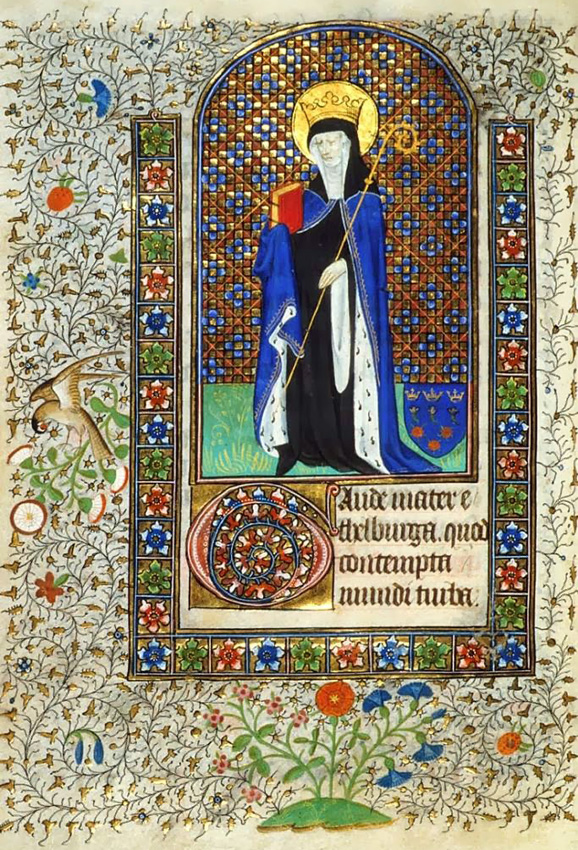 Gaude mater e
thelburga. quod
contempta
mundi turba.